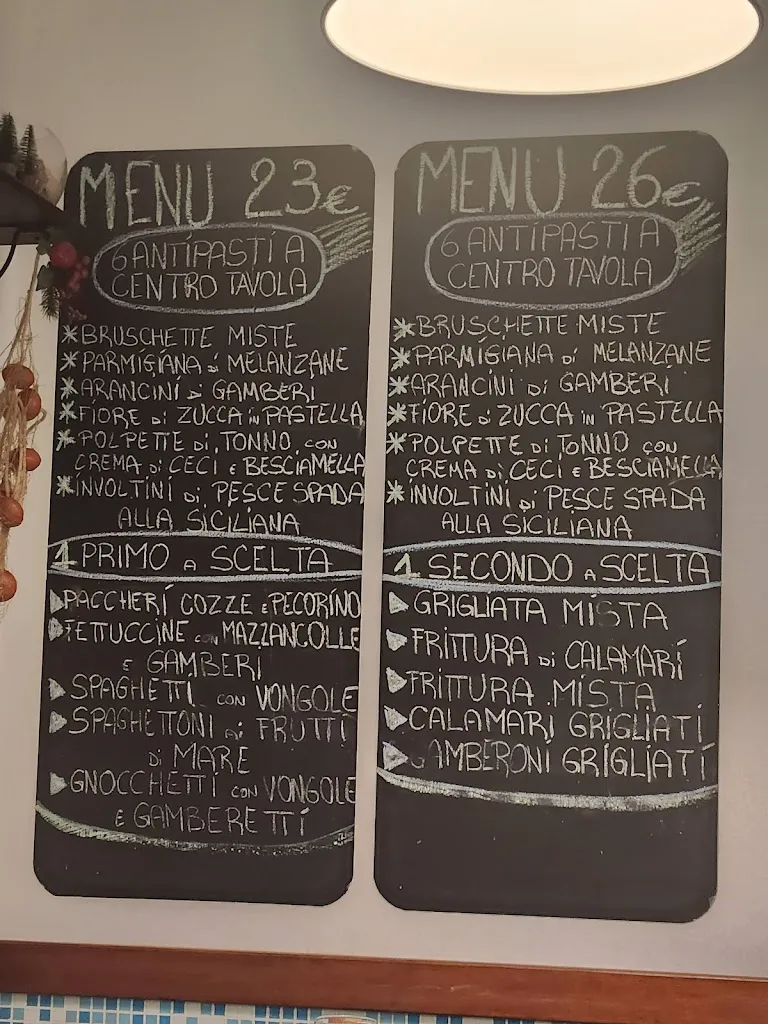 MENU 23€
6 ANTIPASTI A
CENTRO TAVOLA
*BRUSCHETTE MISTE
*PARMIGIANA di MELANZANE
*ARANCINI di GAMBERI
*FIORE di ZUCCA in PASTELLA
*POLPETTE di TONNO con
CREMA di CECI e BESCIAMELLA
*INVOLTINI di PESCE SPADA
ALLA SICILIANA
1 PRIMO A SCELTA
▶PACCHERI COZZE e PECORINO
▶FETTUCCINE con MAZZANCOLLE
E GAMBERI
▶SPAGHETTI con VONGOLE
▶SPAGHETTONI ai FRUTTI
di MARE
▶GNOCCHETTI con VONGOLE
E GAMBERETTI
MENU 26€
6 ANTIPASTI A
CENTRO TAVOLA
*BRUSCHETTE MISTE
*PARMIGIANA di MELANZANE
*ARANCINI di GAMBERI
*FIORE di ZUCCA in PASTELLA
*POLPETTE di TONNO con
CREMA di CECI e BESCIAMELLA
*INVOLTINI di PESCE SPADA
ALLA SICILIANA
1 SECONDO A SCELTA
▶GRIGLIATA MISTA
▶FRITTURA di CALAMARI
▶FRITTURA MISTA
▶CALAMARI GRIGLIATI
▶GAMBERONI GRIGLIATI